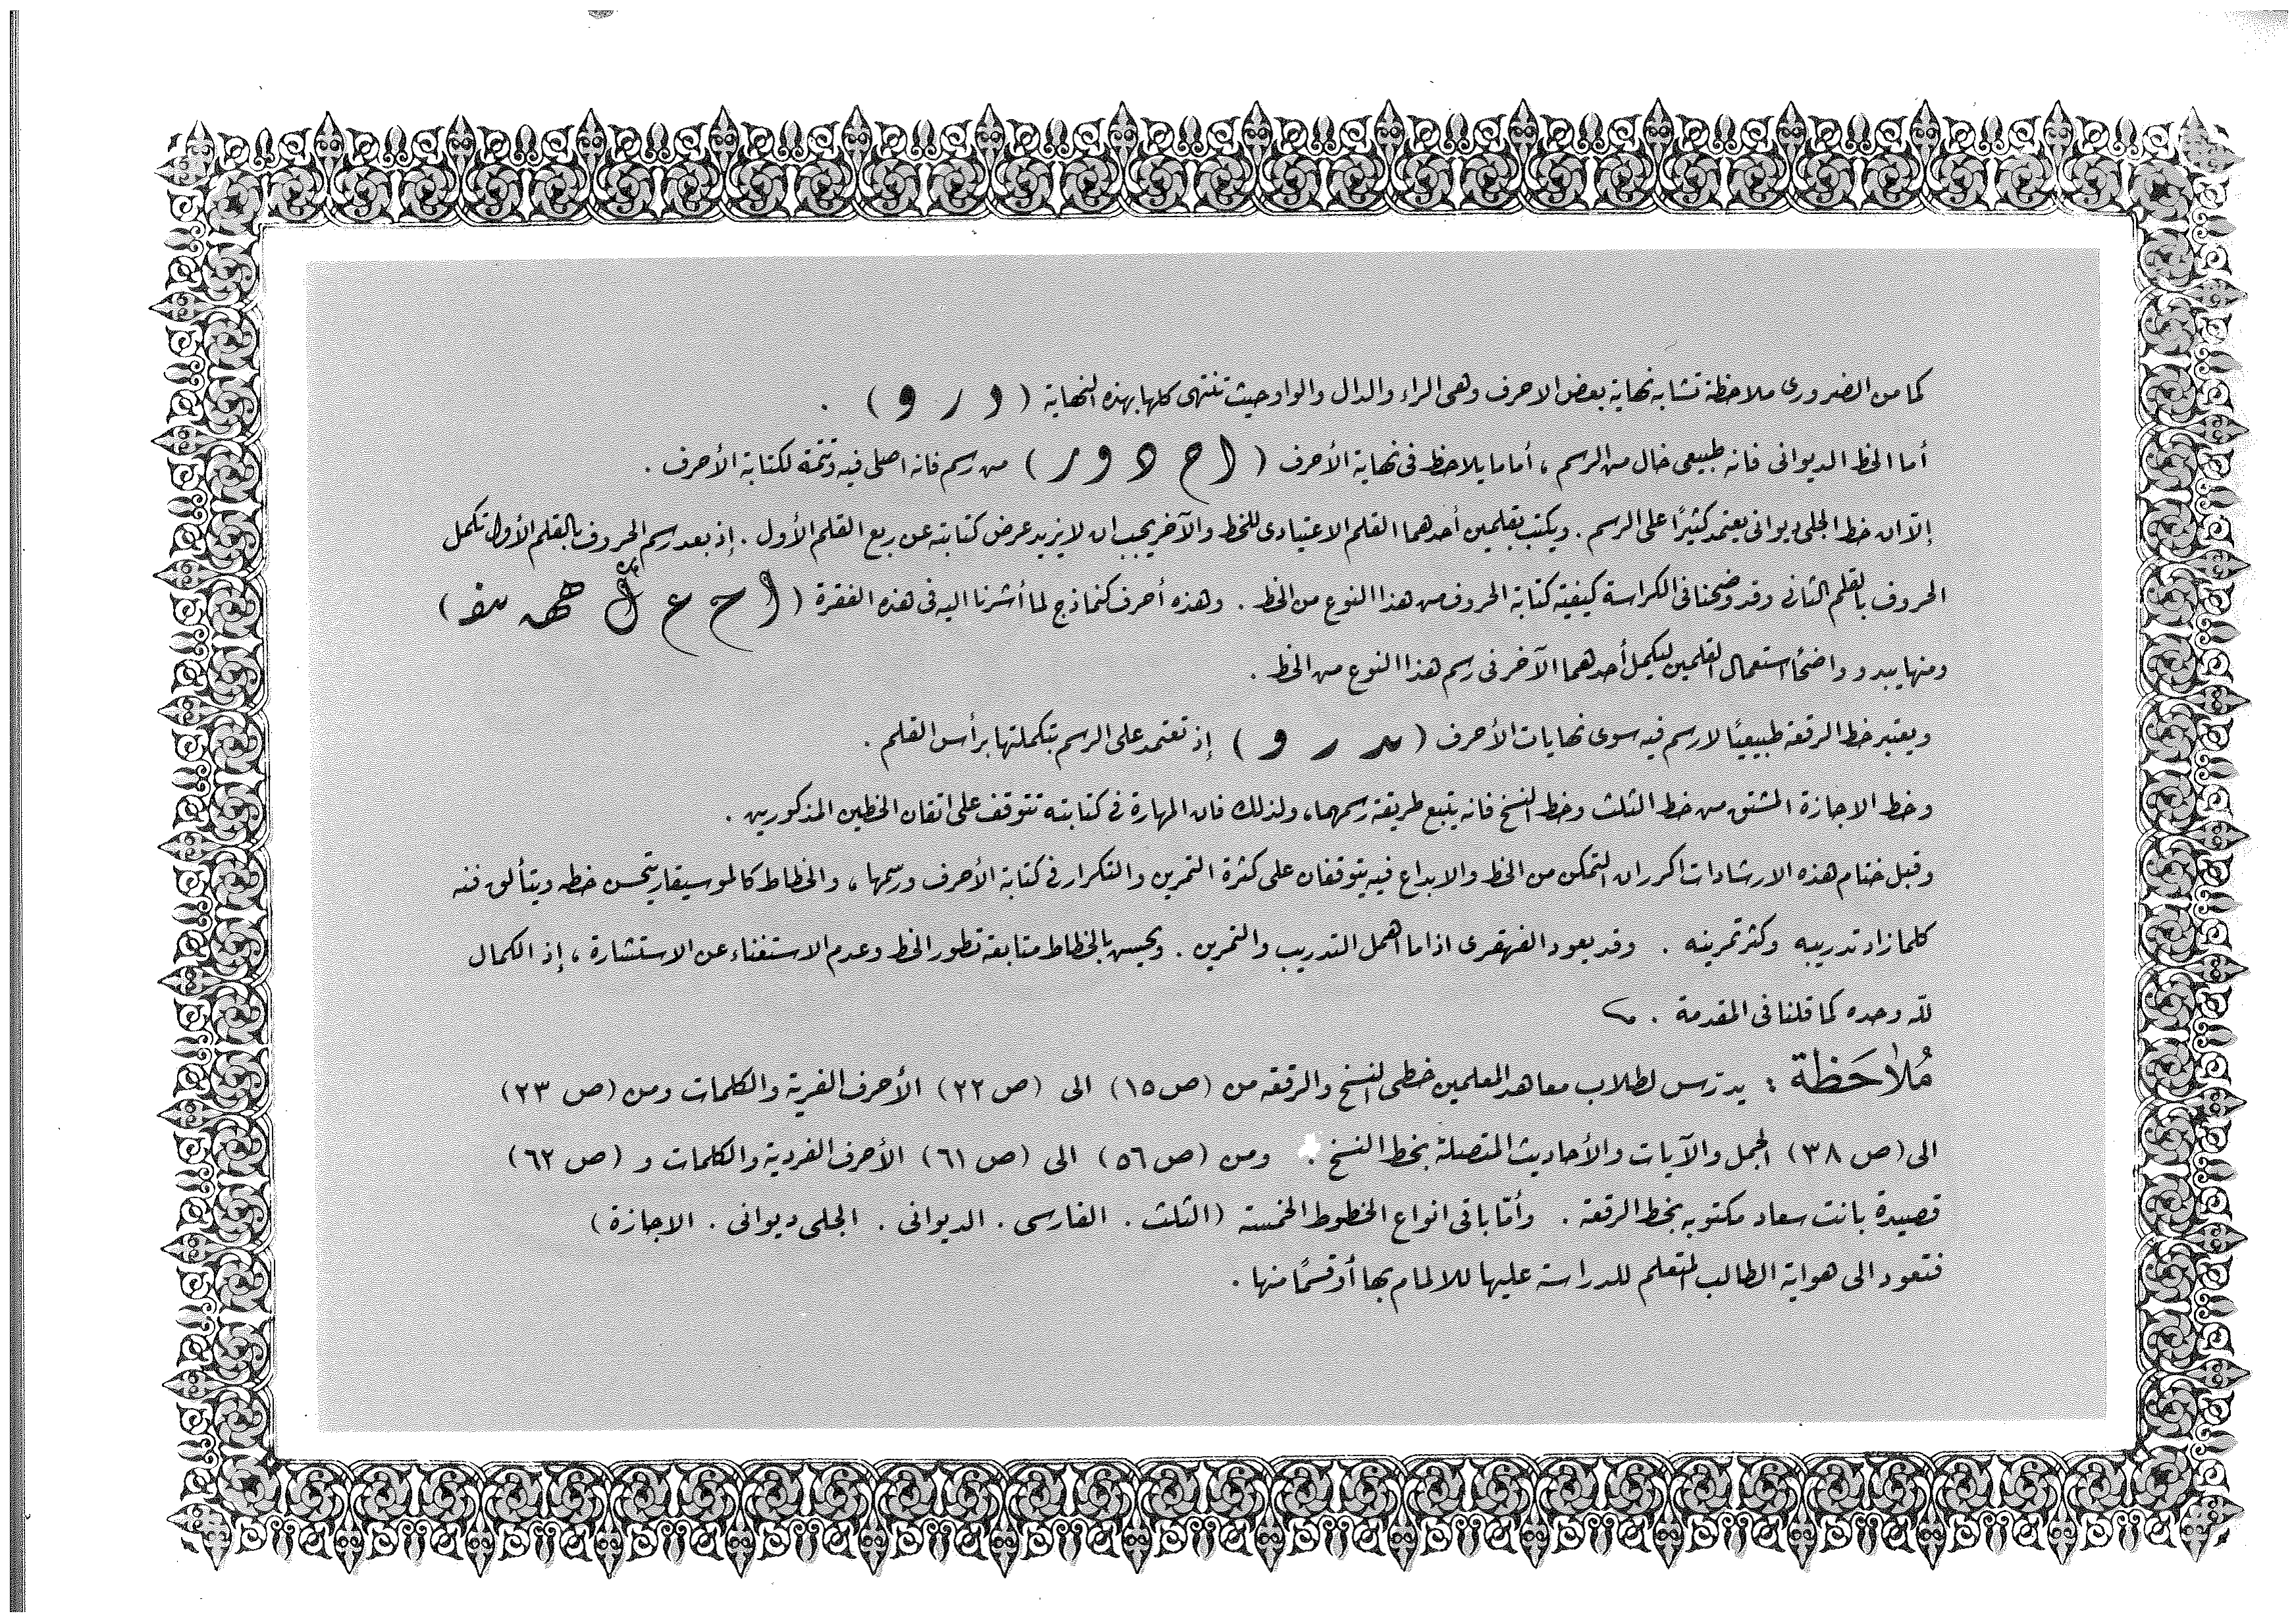 كما من الضرورى ملاحظة تشابه نهاية بعض الاحرف وهى الراء والدال والواو حيث تنتهى كلها بهذه النهاية ( د ر و ) .
أما الخط الديوانى فانه طبيعى خال من الرسم ، أما ما يلاحظ فى نهاية الأحرف ( ا ح د و ر ) من رسم فانه اصلى فيه وتتمة لكتابة الأحرف .
إلّا ان خط الجلى ديوانى يعتمد كثيرًا على الرسم . ويكتب بقلمين أحدهما القلم الاعتيادى للخط والآخر يجب ان لا يزيد عرض كتابته عن ربع القلم الأول . إذ بعد رسم الحروف بالقلم الأول تكمل
الحروف بالقلم الثانى وقد وضحنا فى الكراسة كيفية كتابة الحروف من هذا النوع من الخط . وهذه أحرف كنماذج لما أشرنا اليه فى هذه الفقرة ( ا ح ع ك هـ )
ومنها يبدو واضحًا استعمال القلمين ليكمل أحدهما الآخر فى رسم هذا النوع من الخط .
ويعتبر خط الرقعة طبيعيًا لا رسم فيه سوى نهايات الأحرف ( د ر و ) إذ تعتمد على الرسم بتكملتها برأس القلم .
وخط الاجازة المشتق من خط الثلث وخط النسخ فانه يتبع طريقة رسمهما ، ولذلك فان المهارة فى كتابته تتوقف على اتقان الخطين المذكورين .
وقبل ختام هذه الارشادات اكرر ان التمكن من الخط والابداع فيه يتوقفان على كثرة التمرين والتكرار فى كتابة الأحرف ورسمها ، والخطاط كالموسيقار يتحسن خطه ويتألق فنه
كلما زاد تدريبه وكثر تمرينه . وقد يعود القهقرى اذا ما اهمل التدريب والتمرين . ويحسن بالخطاط متابعة تطور الخط وعدم الاستغناء عن الاستشارة ، إذ الكمال
لله وحده كما قلنا فى المقدمة .
مُلاحَظة : يدرّس لطلاب معاهد المعلمين خطى النسخ والرقعة من (ص ١٥) الى (ص ٢٢) الأحرف الفردية والكلمات ومن (ص ٢٣)
الى (ص ٣٨) الجمل والآيات والأحاديث المتصلة بخط النسخ . ومن (ص ٥٦) الى (ص ٦١) الأحرف الفردية والكلمات و (ص ٦٢)
قصيدة بانت سعاد مكتوبه بخط الرقعة . وأمّا باقى انواع الخطوط الخمسة (الثلث . الفارسى . الديوانى . الجلى ديوانى . الاجازة )
فتعود الى هواية الطالب المتعلم للدراسة عليها للالمام بها أو قسمًا منها .